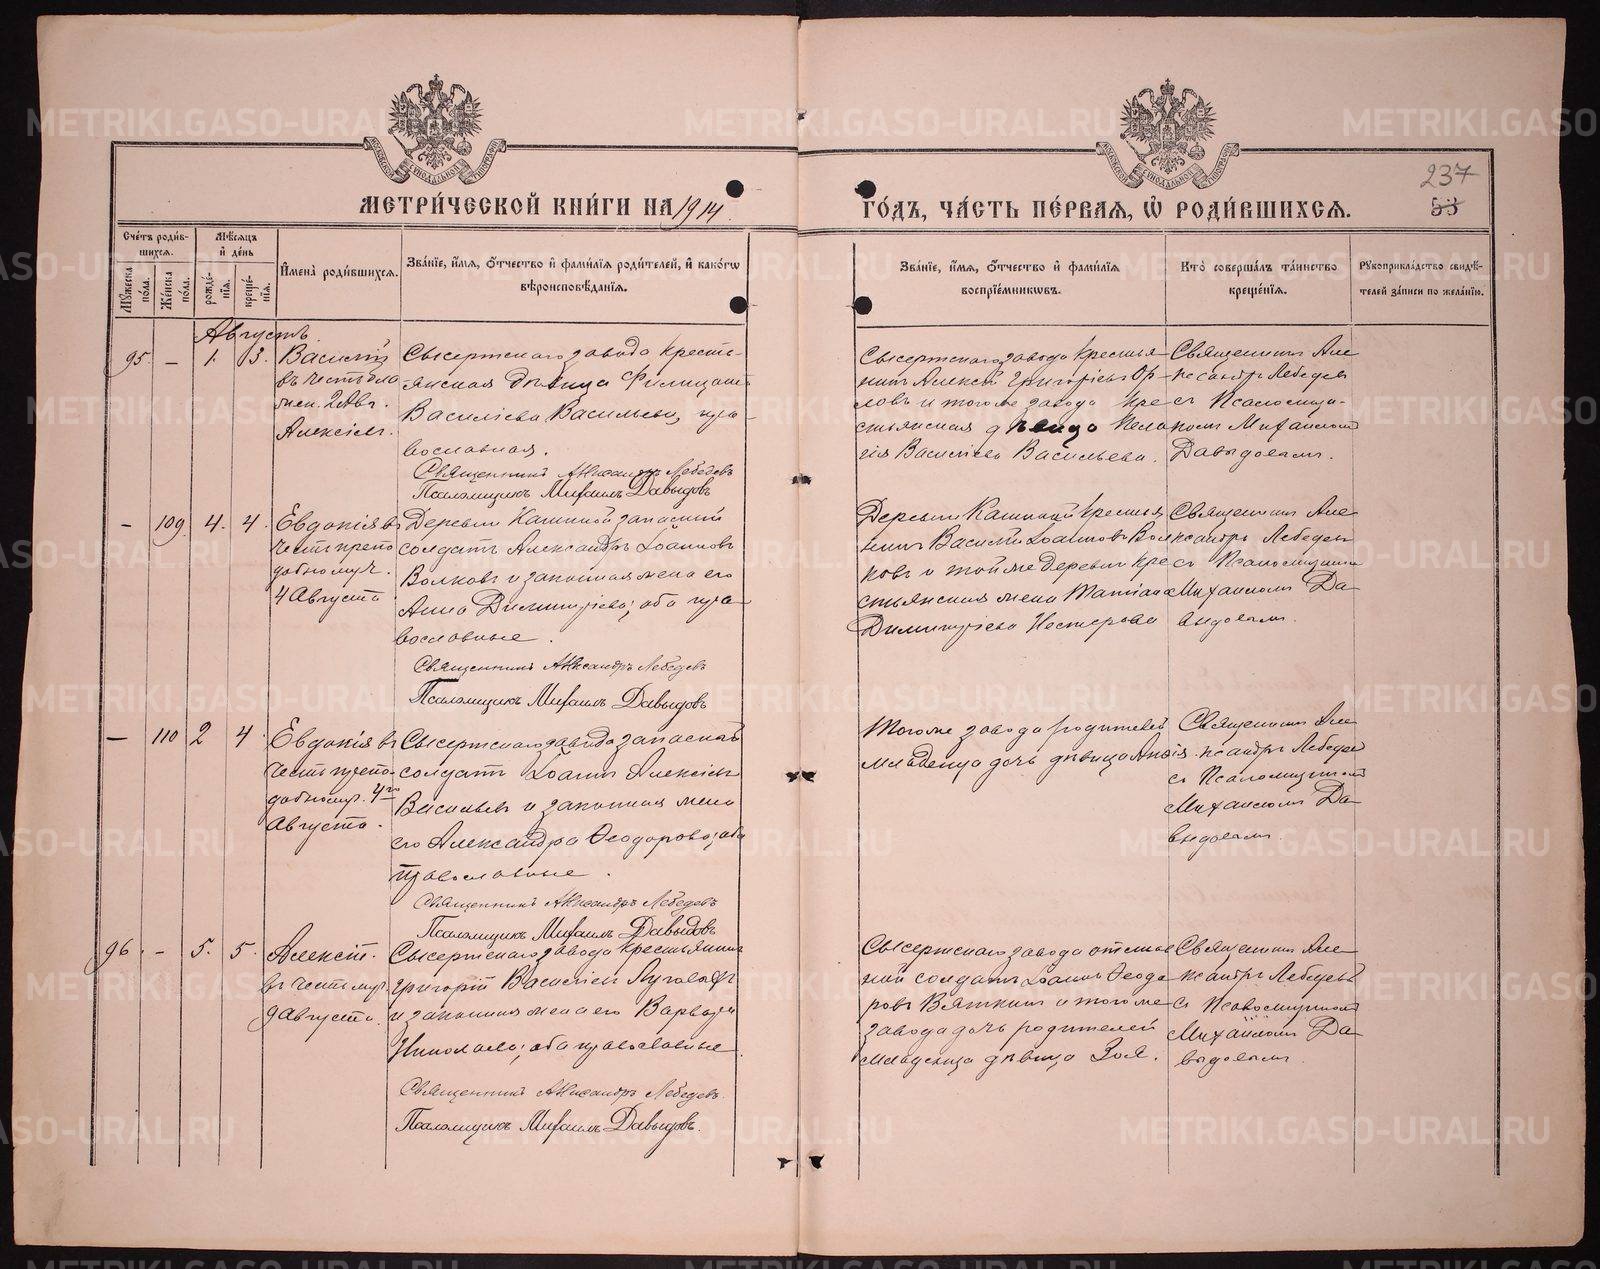 МЕТРИ́ЧЕСКОЙ КНИ́ГИ НА 1914
ГО́ДЪ, ЧА́СТЬ ПЕ́РВАЯ, Ѡ РОДИ́ВШИХСЯ.
237
53
Сче́тъ роди́в-
шихся.
Мѣ́сяцъ
и҆ де́нь
Мꙋ́жеска по́ла.
Же́нска по́ла.
рожде́-
нїя.
креще́-
нїя.
И҆мена̀ роди́вшихся.
Зва́нїе, и҆́мя, ѻ҆́тчество и҆ фами́лїя роди́телей, и҆ како́гѡ
вѣроисповѣ́данїя.
Зва́нїе, и҆́мя, ѻ҆́тчество и҆ фами́лїя
воспрїе́мникѡвъ.
Кто̀ соверша́лъ та́инство
креще́нїя.
Рꙋкоприкла́дство свидѣ́-
телей за́писи по жела́нїю.
Августъ.
95. – 1. 3.
Василій
въ честь бла
жен. 2 Авг.
Алексіев.
Сысертскаго завода кресть-
янская дѣвица Филицата
Василіева Васильева, пра-
вославная.
Священникъ Александръ Лебедевъ
Псаломщикъ Михаилъ Давыдовъ
Сысертскаго завода крестья
нинъ Алексій Григоріевъ Ор-
ловъ и тогоже завода кре
стьянская дѣвица Пела
гія Василіева Васильева.
Священникъ Але
ксандръ Лебедевъ
съ Псаломщи-
комъ Михаиломъ
Давыдовымъ.
– 109. 4. 4.
Евдокія въ
честь препо
добномуч.
4 Августа
Деревни Кашиной запасный
солдатъ Александръ Іоанновъ
Волковъ и законная жена его
Анна Димитріева; оба пра-
вославные.
Священникъ Александръ Лебедевъ
Псаломщикъ Михаилъ Давыдовъ
Деревни Кашиной крестья
нинъ Василій Іоанновъ Вол
ковъ и той же деревни кре
стьянская жена
Димитріева Нестерова
Священникъ Але
ксандръ Лебедевъ
съ Псаломщикомъ
Михаиломъ Да
выдовымъ.
– 110 2 4.
Евдокія въ
честь препо-
добномуч. 4го
Августа.
Сысертскаго завода запасный
солдатъ Іоаннъ Алексіевъ
Васильевъ и законная жена
его Александра Ѳеодорова; оба
православные.
Священникъ Александръ Лебедевъ
Псаломщикъ Михаилъ Давыдовъ
Тогоже завода родителей
младенца дочь дѣвица
Священникъ Але
ксандръ Лебедев
съ Псаломщикомъ
Михаиломъ Да-
выдовымъ.
96. – 5. 5.
Алексій.
въ честь муч.
9 Августа.
Сысертскаго завода крестьянинъ
Григорій Василіевъ
и законная жена его Варвара
Николаева; оба православные.
Священникъ Александръ Лебедевъ.
Псаломщикъ Михаилъ Давыдовъ.
Сысертскаго завода отстав
ной солдатъ Іоаннъ Ѳеодо
ровъ Вяткинъ и тогоже
завода дочь родителей
младенца дѣвица Зоя.
Священникъ Але
ксандръ Лебедевъ
съ Псаломщикомъ
Михаиломъ Да
выдовымъ.
METRIKI.GASO-URAL.RU